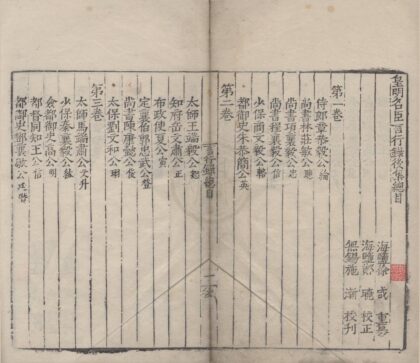 皇明名臣言行錄後集總目
海鹽徐咸重易
海鹽鄭曉校正
無錫施漸校刊
第一卷
侍郎章恭毅公綸
尚書林莊敏公聰
尚書項襄毅公忠
尚書程襄毅公信
少保商文毅公輅
都御史朱恭簡公英
第二卷
言行錄總目
一
太師王端毅公恕
知府岳文肅公正
布政使夏公寅
定襄伯郭忠武公登
尚書陳康懿公俊
太保劉文和公珝
第三卷
太師馬端肅公文升
少保秦襄毅公紘
僉都御史高公明
都督同知王公信
都御史鄧襄敏公廷瓚